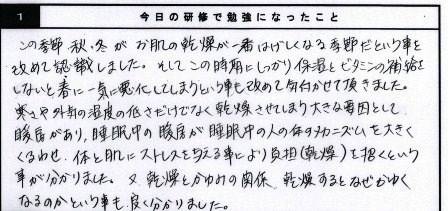 1 今日の研修で勉強になったこと
この季節 秋・冬が お肌の乾燥が一番はげしくなる季節だという事を
改めて認識しました。そしてこの時期にしっかり保湿とビタミンの補給を
しないと春に一気に悪化してしまうという事も改めて気付かせて頂きました。
寒さや外気の湿度の低さだけでなく乾燥させてしまう大きな要因として
暖房があり、睡眠中の暖房が睡眠中の人の体のメカニズムを大きく
くるわせ、体と肌にストレスを与える事により負担(乾燥)を招くという
事が分かりました。又、乾燥とかゆみの関係、乾燥するとなぜかゆく
なるのかという事も良く分かりました。